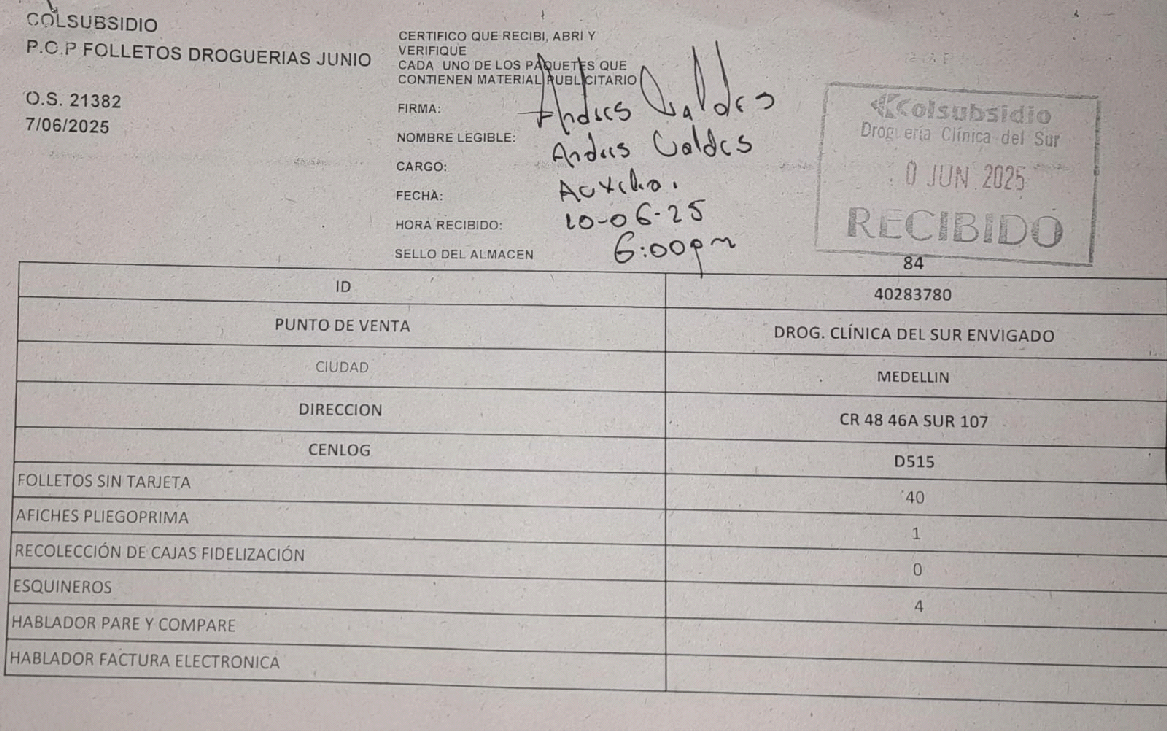 COLSUBSIDIO
P.C.P FOLLETOS DROGUERIAS JUNIO
O.S. 21382
7/06/2025
CERTIFICO QUE RECIBI, ABRI Y
VERIFIQUE
CADA UNO DE LOS PAQUETES QUE
CONTIENEN MATERIAL PUBLICITARIO
FIRMA: Andres Valdes
NOMBRE LEGIBLE: Andres Valdes
CARGO: Auxiliar.
FECHA: 10-06-25
HORA RECIBIDO: 6:00pm
SELLO DEL ALMACEN
Colsubsidio
Droguería Clínica del Sur
0 JUN 2025
RECIBIDO
84
ID 40283780
PUNTO DE VENTA DROG. CLÍNICA DEL SUR ENVIGADO
CIUDAD MEDELLIN
DIRECCION CR 48 46A SUR 107
CENLOG D515
FOLLETOS SIN TARJETA 40
AFICHES PLIEGOPRIMA 1
RECOLECCIÓN DE CAJAS FIDELIZACIÓN 0
ESQUINEROS 4
HABLADOR PARE Y COMPARE
HABLADOR FACTURA ELECTRONICA